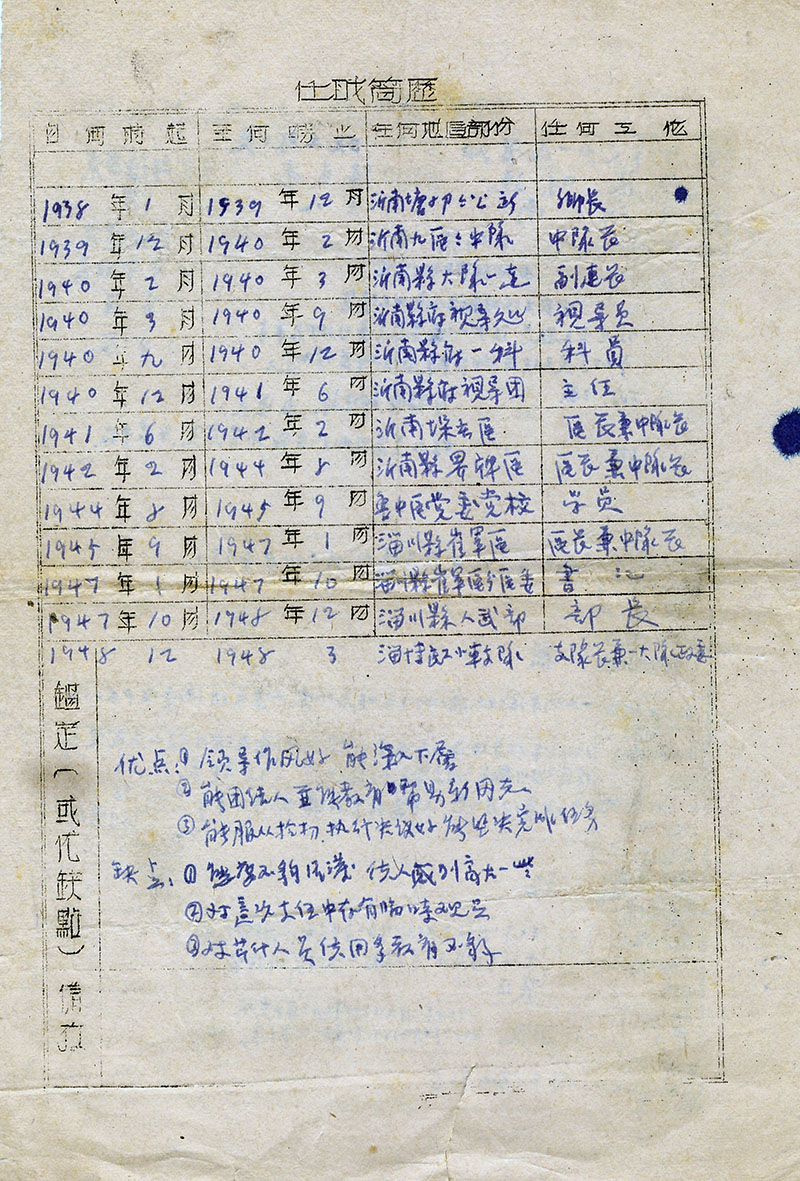 任职简歷
自何时起 至何时止 在何地區部份 任何工作
1938年1月 1939年12月 沂南 公所 鄉長
1939年12月 1940年2月 沂南九區 中隊 中隊長
1940年2月 1940年3月 沂南縣大隊一連 副連長
1940年3月 1940年9月 沂南縣府視导处 視导员
1940年九月 1940年12月 沂南縣府一科 科員
1940年12月 1941年6月 沂南縣府視导团 主任
1941年6月 1942年2月 沂南 區 區長兼中隊長
1942年2月 1944年8月 沂南縣界牌區 區長兼中隊長
1944年8月 1945年9月 魯中區党委党校 学员
1945年9月 1947年1月 淄川縣崔軍區 區長兼中隊長
1947年1月 1947年10月 淄川縣崔軍區分區委 書记
1947年10月 1948年12月 淄川縣人武部 部長
1948 12 1948 3 淄博民工小車支隊 支隊長兼一大隊政委
鑑定(或优缺點)備攷
优点:①领导作风好 能深入下層
②能团结人 教育帮助新同志
③能服从 执行决议好 坚决完成任务
缺点:① 不够 使人感到高大一些
②对 主任中存有临時观点
③对 人员使用多教育不够